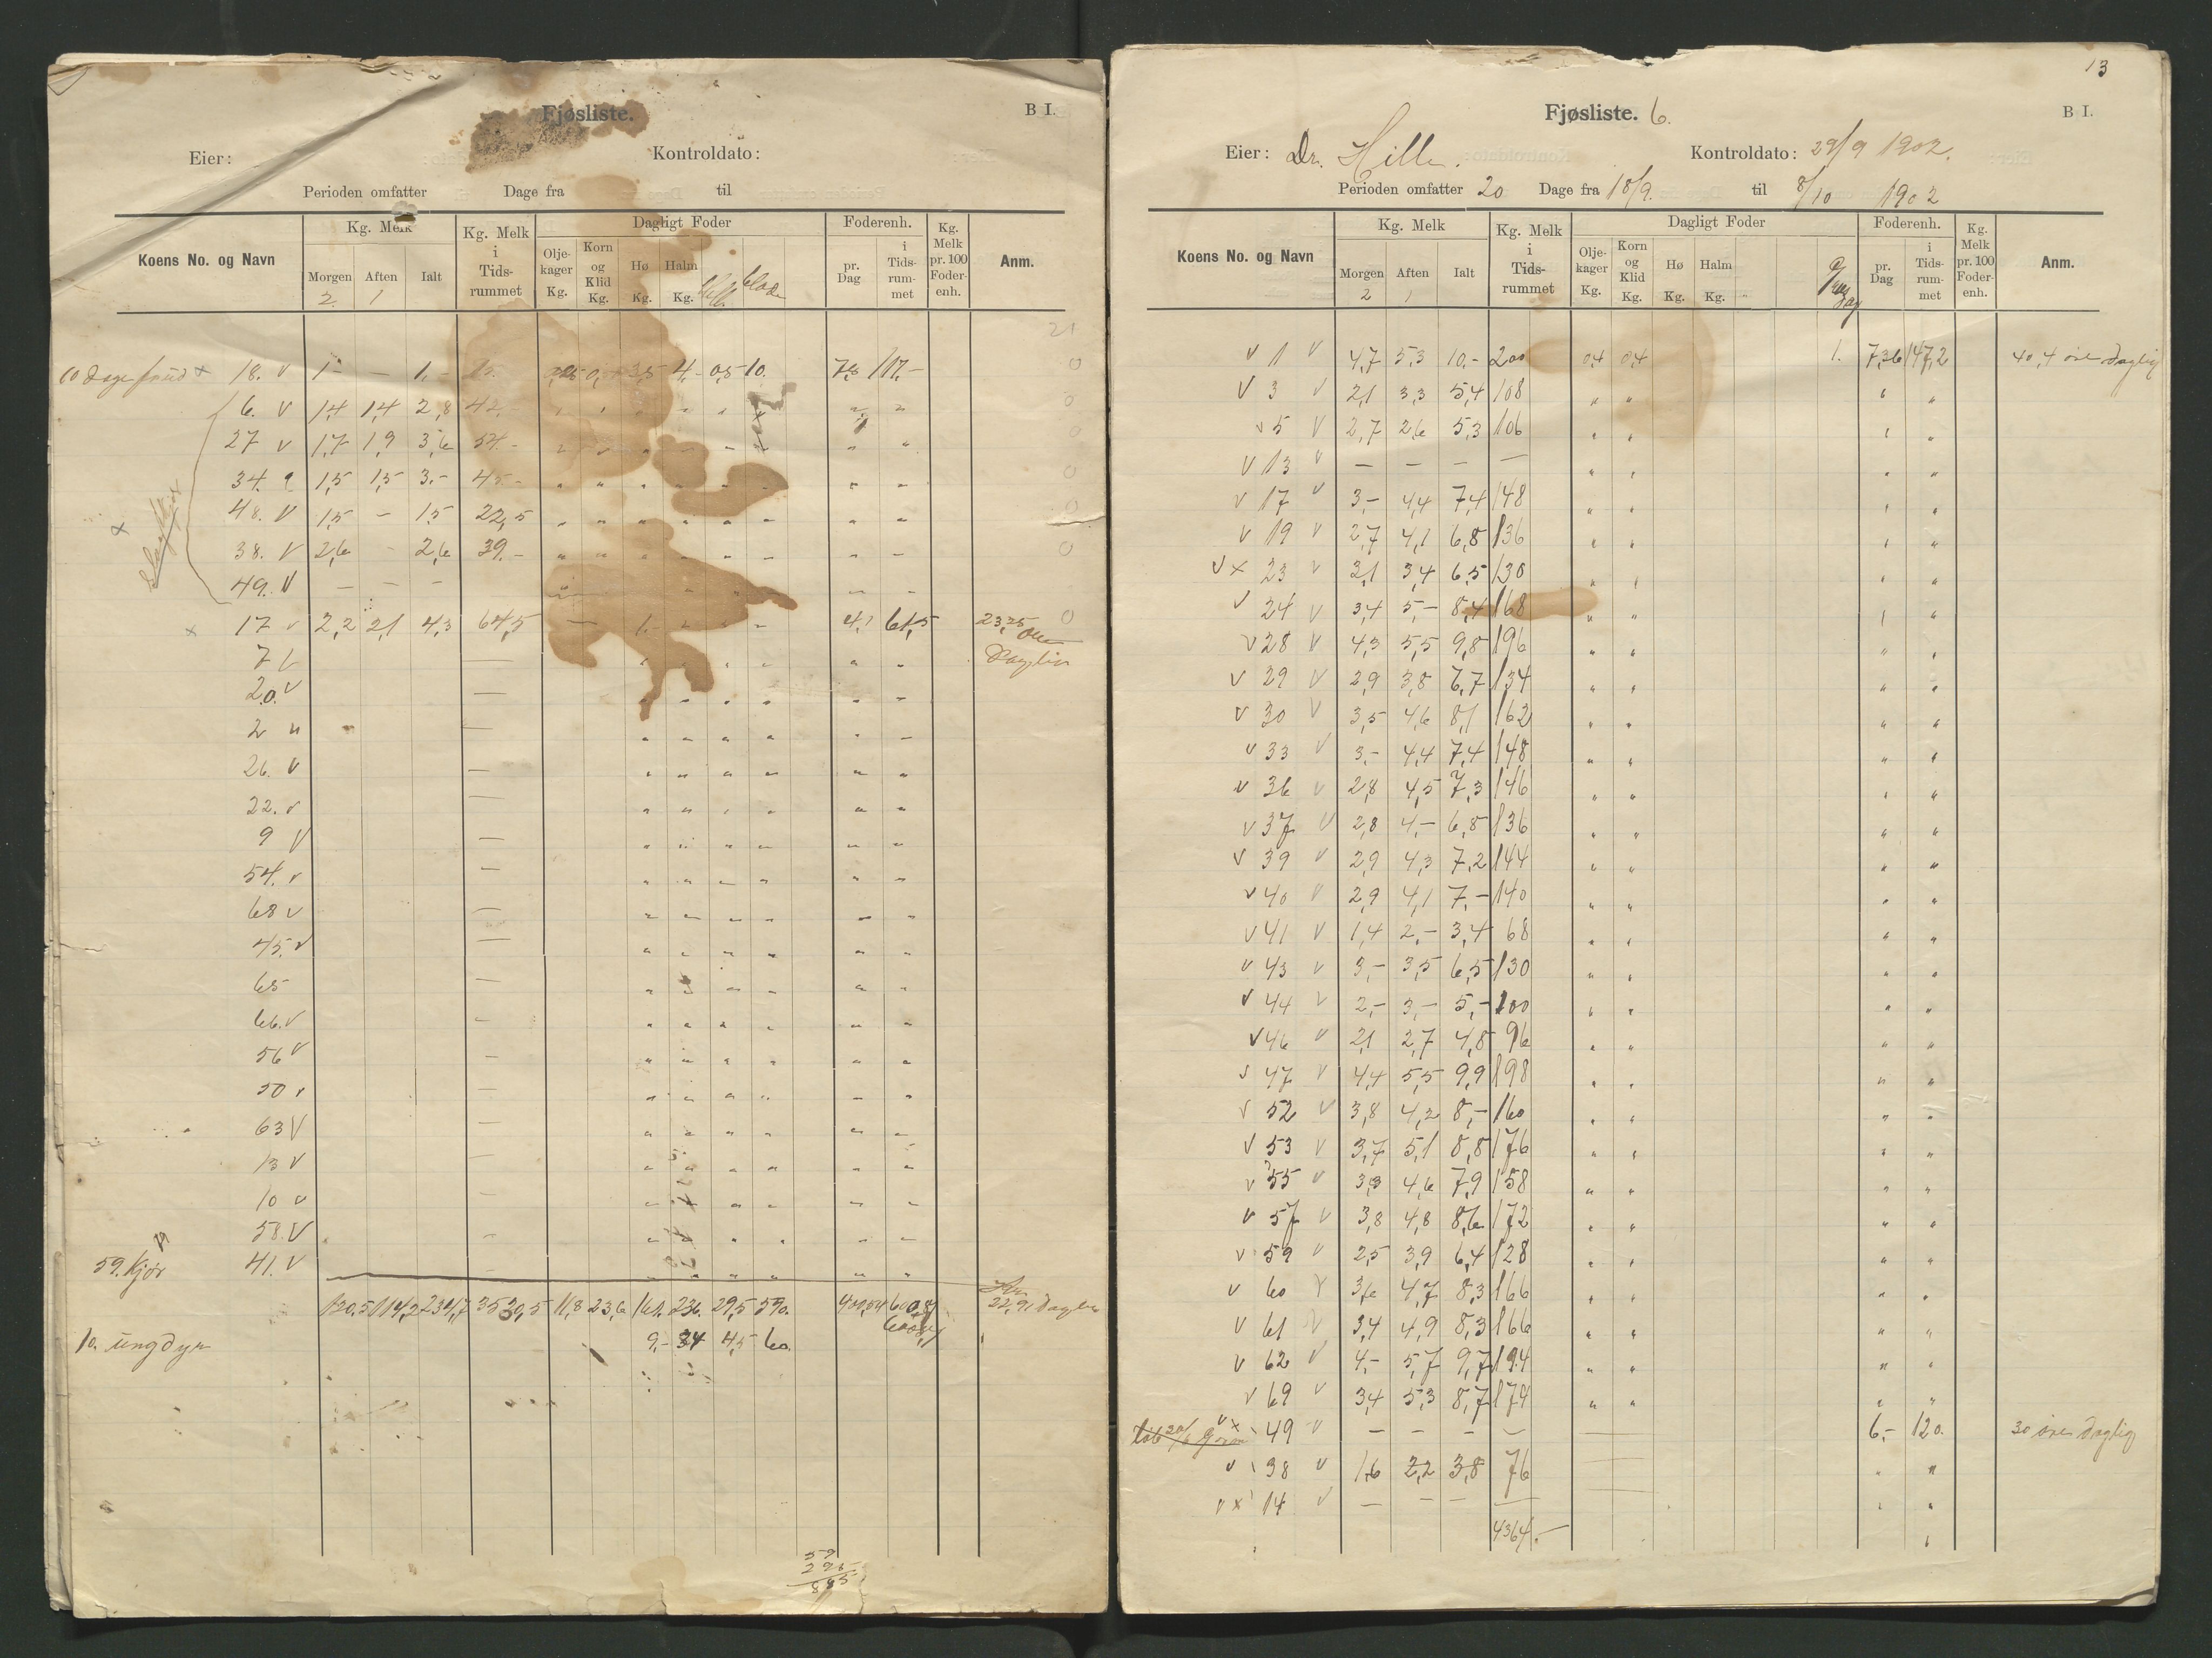 Fjøsliste.
B I.
Eier:
Kontroldato:
Perioden omfatter Dage fra til
Koens No. og Navn
Kg. Melk
Morgen Aften Ialt
2 1
Kg. Melk i Tids- rummet
Dagligt Foder
Olje- kager Kg.
Korn og Klid Kg.
Hø Kg.
Halm Kg.
Foderenh.
pr. Dag
i Tids- rum- met
Kg. Melk pr. 100 Foder- enh.
Anm.
21
18. v 1 - - 1,- 4,- 0,5 10. 117,- 0
6. v 1,4 1,4 2,8 42,- " " " " " " " " 0
27 v 1,7 1,9 3,6 54.- " " " " " " " " 0
34. 1,5 1,5 3.- 45.- " " " " " " " " 0
48. v 1,5 - 1,5 22,5 " " " " " " " " 0
38. v 2,6 - 2,6 39.- " " " " " " " " 0
49. v - - - " "
x 17 v 2,2 2,1 4,3 64,5 - 1.- " " " 4,1 61,5 23,25 0
7 v - " " " " " "
20. v - " " " " " "
2 - " " " " " "
26. v - " " " " " "
22. v - " " " " " "
9 v - " " " " " "
54. v - " " " " " "
68 v - " " " " " "
45. v - " " " " " "
65 - " " " " " "
66. v - " " " " " "
56 v - " " " " " "
50 v - " " " " " "
63 v - " " " " " "
13 v - " " " " " "
10 v - " " " " " "
58. v - " " " " " "
59. Kjør 41. v - " " " " " "
120.5 114,2 234,7 3520,5 11,8 23,6 236. 29,5 590.
10. ungdyr 9,- 24 4,5 60.
59
295
885
13
Fjøsliste. 6.
B I.
Eier: Dr. Hille. Kontroldato: 29/9 1902.
Perioden omfatter 20 Dage fra 18/9. til 8/10 1902
Koens No. og Navn
Kg. Melk
Morgen Aften Ialt
2 1
Kg. Melk i Tids- rummet
Dagligt Foder
Olje- kager Kg.
Korn og Klid Kg.
Hø Kg.
Halm Kg.
Foderenh.
pr. Dag
i Tids- rum- met
Kg. Melk pr. 100 Foder- enh.
Anm.
v 1 v 4,7 5,3 10,- 200 0,4 0,4 1. 7,36 147,2 40,4 øre daglig
v 3 v 2,1 3,3 5,4 108 " " " "
v 5 v 2,7 2,6 5,3 106 " " " "
v 13 v - - - - " " " "
v 17 v 3,- 4,4 7,4 148 " " " "
v 19 v 2,7 4,1 6,8 136 " " " "
v x 23 v 3,1 3,4 6,5 130 " " " "
v 24 v 3,4 5,- 8,4 168 " " " "
v 28 v 4,3 5,5 9,8 196 " " " "
v 29 v 2,9 3,8 6,7 134 " " " "
v 30 v 3,5 4,6 8,1 162 " " " "
v 33 v 3,- 4,4 7,4 148 " " " "
v 36 v 2,8 4,5 7,3 146 " " " "
v 37 v 2,8 4,- 6,8 136 " " " "
v 39 v 2,9 4,3 7,2 144 " " " "
v 40 v 2,9 4,1 7,- 140 " " " "
v 41 v 1,4 2,- 3,4 68 " " " "
v 43 v 3,- 3,5 6,5 130 " " " "
v 44 v 2,- 3,- 5,- 100 " " " "
v 46 v 2,1 2,7 4,8 96 " " " "
v 47 v 4,4 5,5 9,9 198 " " " "
v 52 v 3,8 4,2 8,- 160 " " " "
v 53 v 3,7 5,1 8,8 176 " " " "
v 55 v 3,3 4,6 7,9 158 " " " "
v 57 v 3,8 4,8 8,6 172 " " " "
v 59 v 2,5 3,9 6,4 128 " " " "
v 60 v 3,6 4,7 8,3 166 " " " "
v 61 v 3,4 4,9 8,3 166 " " " "
v 62 v 4,- 5,7 9,7 194 " " " "
v 69 v 3,4 5,3 8,7 174 " " " "
v x 49 v - - - - - 6,- 120. 30 øre daglig
v 38 v 1,6 2,2 3,8 76 - " "
v x 14 v - - - - - " "
4364.-